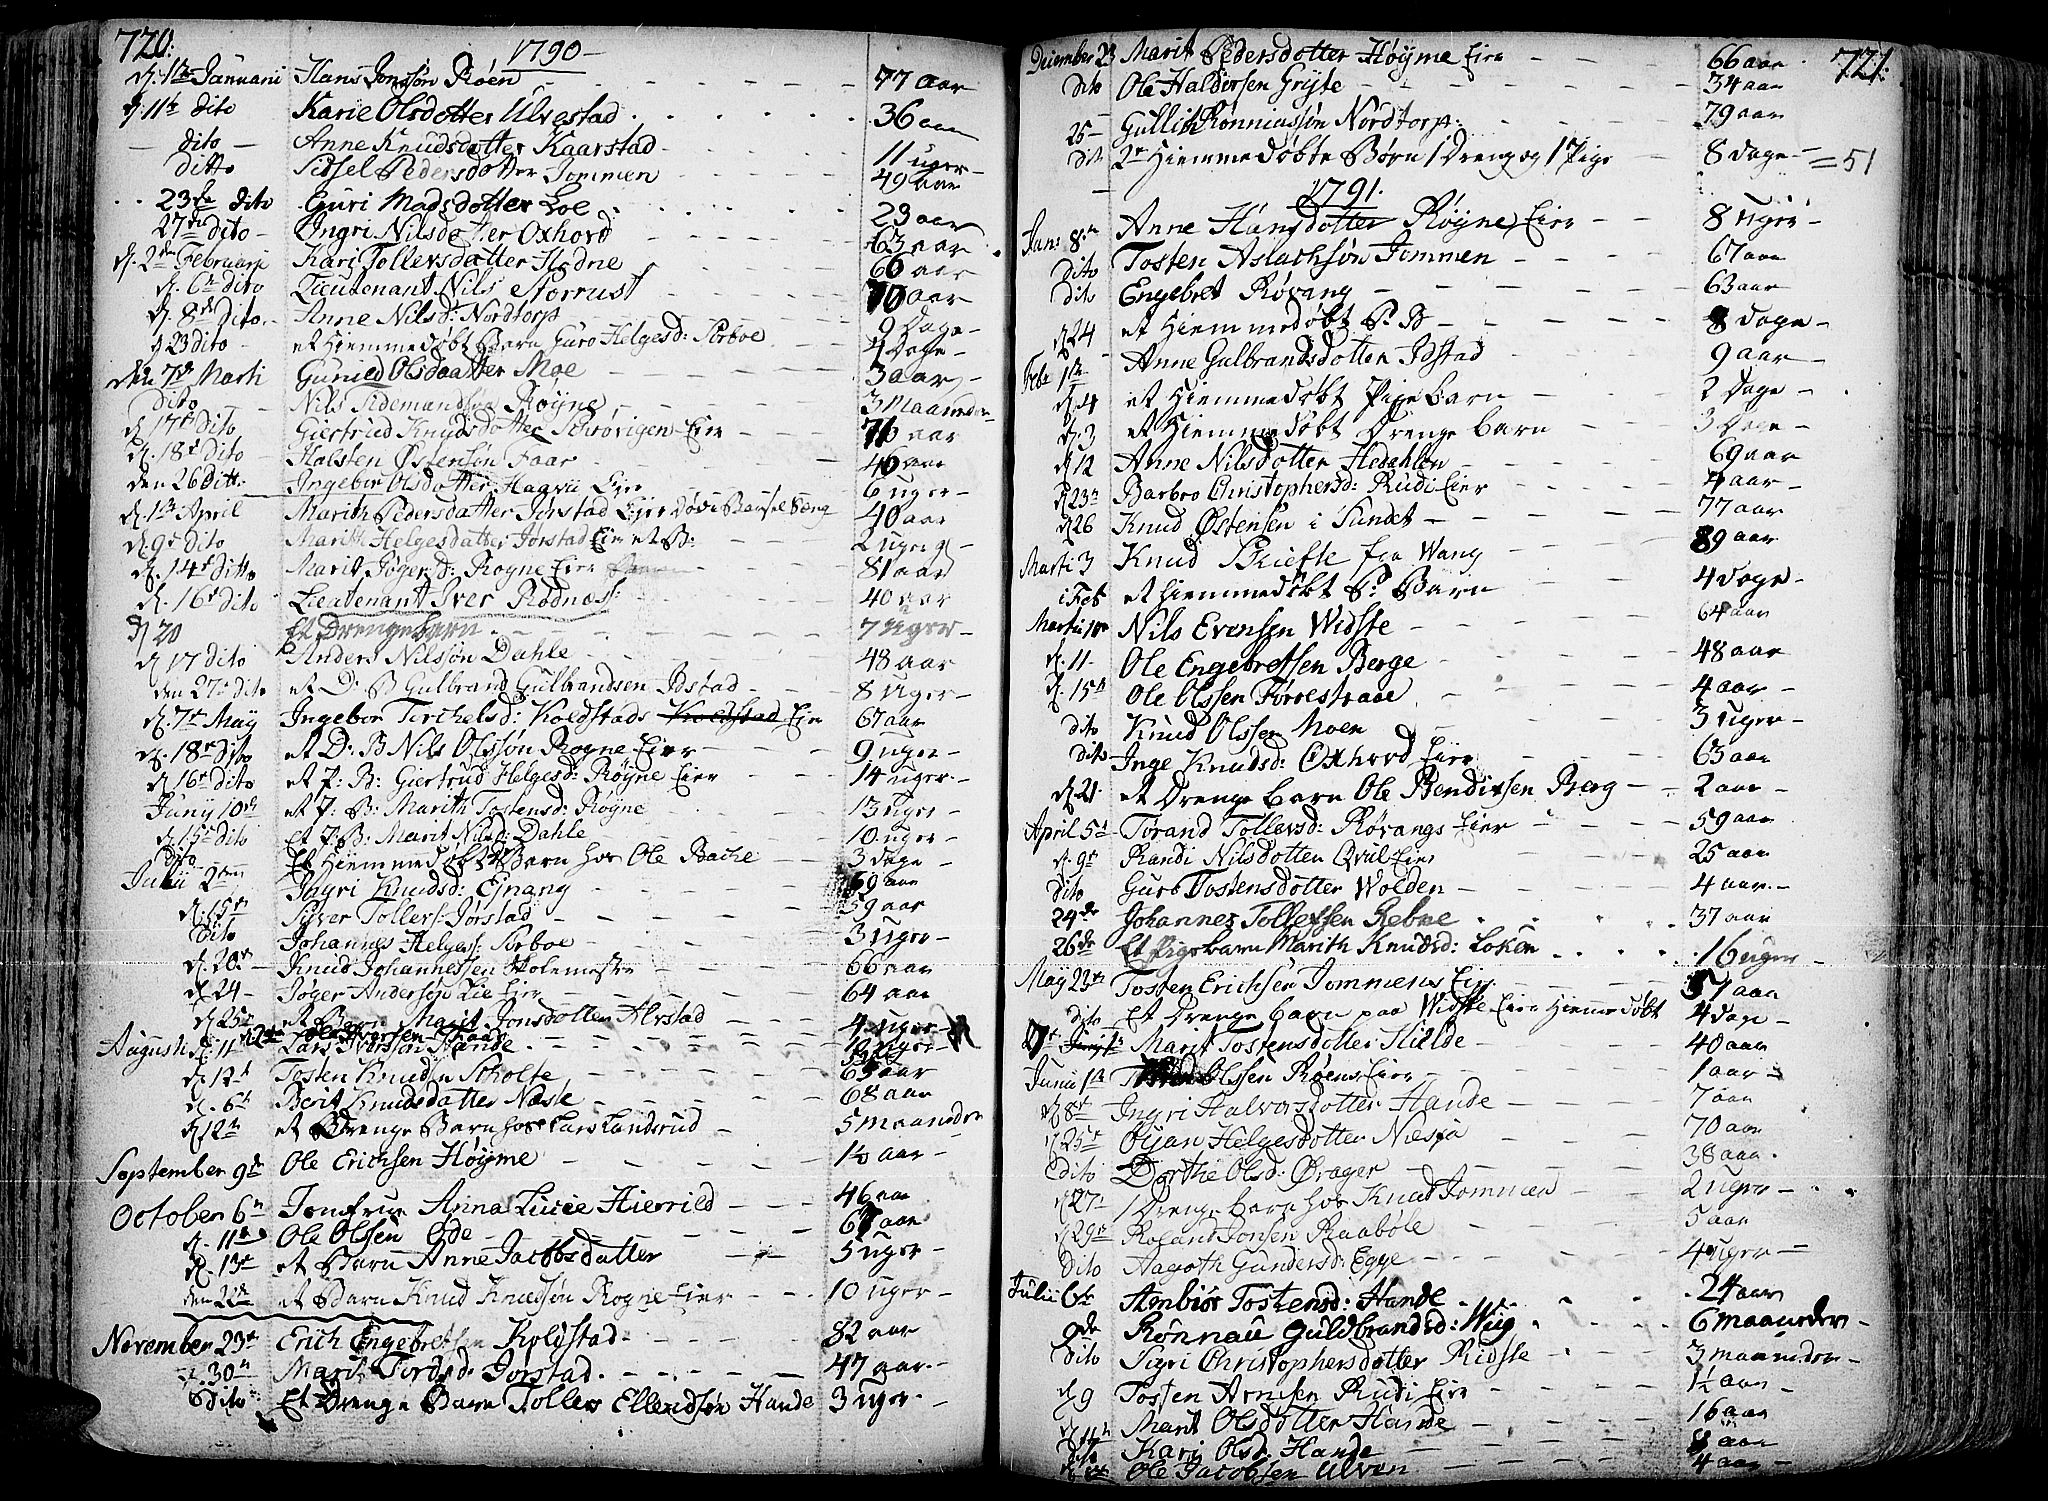 720.
1790
d. 1te Januarii Hans Jonssøn Røen 77 aar
d. 11te dito Karie Olsdotter Ulvestad 36 aar
dito Anne Knudsdotter Kaarstad 11 uger
ditto Sidsel Pedersdotter Jommen 49 aar
23de dito Guri Madsdotter Loe 23 aar
27de dito Ingri Nilsdotter Oxhord 63 aar
d. 2den Februari Kari Tollersdatter Hodne 60 aar
d. 6te dito Lieutenant Nils Storrust 70 aar
d. 8de dito Anne Nilsd: Nordtorp 9 Dage
d 23 dito et Hiemmedøbt Barn Guro Helgesd: Sørboe 4 Dage
den 7de Marti Gunild Olsdaatter Moe 3 aar
Dito Nils Tidemandsen Røyne 3 Maaneder
d 17de dito Giertrud Knudsdotter Schrøvigen Eier 76 aar
d. 18de dito Halsten Østensøn Faar 40 aar
den 26 Ditto Ingebor Olsdotter Haavie Eier 6 uger
d. 1te April Marith Pedersdatter Jørstad Eier døde i Barsel Sæng 40 aar
d. 9de dito Marith Helgesdatter Jørstad Eie et B: 2 uger
d. 14de ditto Marit Jøgersd: Rogne Eier 81 aar
d. 16de dito Lieutenant Iver Rødnæs: 40 aar
d 20 Et Drengebarn 7 uger
d 17 dito Anders Nilssøn Dahle 48 aar
den 27de dito et D: B Gulbrand Gulbrandsen Idstad 8 uger
d. 7de May Ingebor Torchelsd: Koldstads Koldstad Eier 67 aar
d. 18de dito et D: B Nils Olssøn Rogne Eier 9 uger
d 16de dito et P: B: Giertrud Helgesd: Røyne Eier 14 uger
Juny 10de et P: B: Marith Tostensd: Røyne 13 uger
d. 15de dito Et P: B: Marit Nilsd: Dahle 10 uger
dito Et Hiemmedøbt Barn hos Ole Bache 3 dage
Julii 2den Ingri Knudsd: Ejnang 69 aar
d. 15de Siver Tollers: Jørstad 59 aar
Dito Johannes Helges: Sørboe 3 uger
d. 20de Knud Johannessen Skolemestre 66 aar
d 24 Jøger Andersøn Lie Eier 64 aar
d 25de et Barn Marit Jonsdotter Alvstad 4 uger
Augusti d. 11te Lars Iverssøn Hande
d. 12te Tosten Knudsen Scholte 65 aar
d. 6te Berit Knudsdatter Næste 68 aar
d 12te et Drenge Barn hos Lars Landsrud 5 maaneder
September 9de Ole Erichsen Høyme 1½ aar
October 6te Jomfrue Anna Lucie Hierrild 46 aar
d. 11te Ole Olssen Ode 67 aar
d. 13de et Barn Anne Jacobsdatter 5 uger
den 22de et Barn Knud Knudsøn Rogne Eier 10 uger
November 23de Erich Engebretsen Koldstad 82 aar
d. 30te Marit Tordsd: Jørstad 47 aar
Dito Et Drenge Barn Tollers Ellendsøn Hande 3 uger
721.
December 23 Marit Pedersdotter Høyme Eier 66 aar
dito Ole Haldorsen Gryte 34 aar
25 Gullik Rønniussøn Nordtorp 79 aar
dito 2de Hiemmedøbte Børn 1 Dreng og 1 Pige 8 dage = 51
1791.
Jan: 8de Anne Hansdotter Røyne Eier 8 uger
dito Tosten Aslachsøn Jommen 67 aar
dito Engebret Røvang 63 aar
d 24 et Hiemmedøbt P. B 8 dage
Feb: 1te Anne Gulbrandsdotter Idstad 9 aar
d. 4 et Hiemmedøbt Pige barn 2 Dage
d. 3 et Hiemmedøbt Drenge barn 3 Dage
d 12 Anne Nilsdotter Hedahlen 69 aar
d 23de Barbro Christophersd: Rudi Eier 4 aar
d 26 Knud Østensen i Sundet 77 aar
Marti 3 Knud Briefte fra Wang 89 aar
i Feb et Hiemmedøbt P. Barn 4 dage
Martii 10de Nils Evensen Widste 64 aar
d. 11 Ole Engebretsen Berge 48 aar
d. 15de Ole Olssen Førrestraae 4 aar
dito Knud Olssen Moen 3 uger
dito Inge Knudsd: Oxhord Eier 63 aar
d 21 et Drenge barn Ole Bendixsen Berg 2 aar
April 5te Torand Tollersd: Røvangs Eier 59 aar
d. 9de Randi Nilsdotter Qvil Eier 25 aar
dito Guro Tostensdotter Wolden 4 aar
24de Johannes Tollefsen Rebne 37 aar
26de Et Pigebarn Marith Knudsd: Loken 16 uger
May 22de Tosten Erichsen Jommens Eier 57 aar
dito Et Drenge barn paa Widste Eier Hiemmedøbt 4 dage
Marit Tostensdotter Hielde 40 aar
Junii 1te Olssen Røens Eier 1 aar
d 8de Ingri Halvorsdotter Hande 7 aar
d 25de Øijan Helgesdotter Næsja 70 aar
Dito Dorthe Olsd: Ørager 38 aar
d 27 1 Drenge barn hos Knud Jommen 2 uger
d 29de Roland Jonsen Raabøle 5 aar
Dito Aagoth Gundersd: Egge 4 uger
Julii 6te Ambiør Tostensd: Hande 24 aar
9de Rønnau Guldbrandsd: Wiig 6 maaneder
Dito Sigri Christophersdotter Ridste 3 maaneder
d 9 Tosten Arnesen Rudi Eier 1½ aar
d 11te Marit Olsdotter Hande 16 aar
dito Kari Olsd: Hande 8 aar
Ole Jacobsen Ulven 4 aar